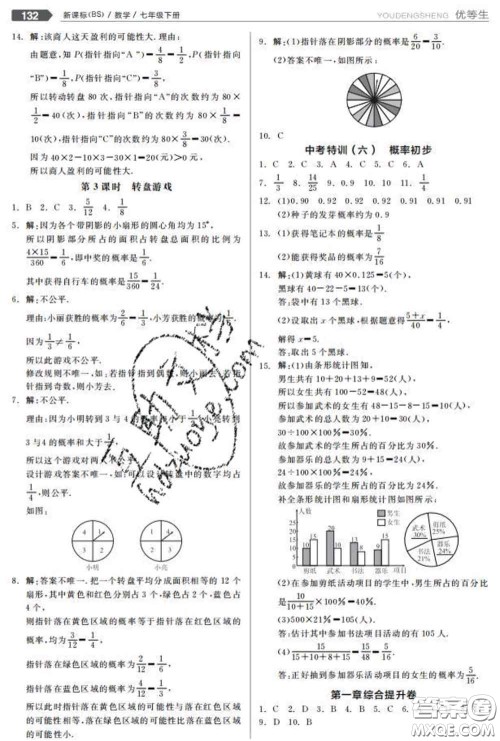 132 新课标(BS)/数学/七年级下册
YOUDENGSHENG 优等生
14. 解:该商人这天盈利的可能性大. 理由:
由题意,知 P(指针指向“A”)=4/8=1/2,P(指针指向
“B”)=1/8,P(指针指向“C”)=3/8,
所以转动转盘 80 次,指针指向“A”的次数约为 80×
1/2=40(次),指针指向“B”的次数约为 80×1/8=
10(次),指针指向“C”的次数约为 80×3/8=30(次).
因为 40×2-10×3-30×1=20(元)>0 元,
所以商人盈利的可能性大.
第 3 课时 转盘游戏
1. B 2. C 3. 5/12 4. 1/8
5. 解:因为各个带阴影的小扇形的圆心角均为 15°,
所以阴影部分所占的面积占转盘总面积的比例为
4×15/360=1/6,即中奖的概率是1/6.
其中获得自行车的概率是15/360=1/24.
6. 解:不公平.
理由:小丽获胜的概率为1/2,小芳获胜的概率为1/6.
因为1/2≠1/6,
所以此游戏不公平.
修改规则不唯一,如:若指针指到偶数,则小丽去;若指
针指到奇数,则小芳去.
7. 解:不公平.
理由:因为小明转到 3 与 4 的概率
3 与 4 的概率和大于1/2,
所以这个游戏对两人不公平.
设计游戏答案不唯一,如:
1/4,则公平.
如图:
1 2 3 4
小明
1 2 3 4
小亮
8. 解:答案不唯一. 把一个转盘平均分成面积相等的 12 个
扇形,其中黄色和红色分别占 3 个,蓝色占 2 个,绿色占
4 个.
则指针落在黄色区域的概率等于指针落在红色区域的
概率,均为3/12=1/4,
指针落在蓝色区域的概率为2/12=1/6,
指针落在绿色区域的概率为4/12=1/3.
所以指针落在黄色区域与指针落在红色区域的可能性
相等,指针落在绿色区域的可能性大于指针落在黄色
区域的可能性.
9. 解:(1)指针落在阴影部分的概率是6/20=3/10.
(2)答案不唯一,如图所示:
10. C
中考特训(六) 概率初步
1. C 2. C 3. A 4. C 5. C 6. A
7. 1/3 8. 14/25 9. 0.9 10. 10 11. 1/4
12. (1)0.90 0.92 0.92 0.91 0.92 0.91
(2)种子的发芽概率约为 0.9
13. (1)获得笔记本的概率为1/8
(2)能获得奖品的概率为7/16
14. 解:(1)黄球有 40×0.125=5(个),
黑球有 40-22-5=13(个).
答:袋中有 13 个黑球.
(2)设取出 x 个黑球,根据题意得5+x/40=1/4,
解得 x=5.
答:取出 5 个黑球.
15. 解:(1)由条形统计图知,
男生共有 10+20+13+9=52(人),
所以女生共有 100-52=48(人).
所以参加武术的女生有 48-15-8-15=10(人).
所以参加武术的人数为 20+10=30(人).
30÷100×100%=30%.
故参加武术的学生所占的百分比为 30%.
参加器乐的人数为 9+15=24(人).
24÷100×100%=24%.
故参加器乐的学生所占的百分比为 24%.
补全条形统计图和扇形统计图如图所示:
人数
男生
女生
10 15 20 10 13 8 9 15
剪纸 武术 书法 器乐 项目
武术 30% 剪纸 25% 书法 21% 器乐 24%
(2)在参加剪纸活动项目的学生中,男生所占的百分比是
10/10+15×100%=40%.
(3)500×21%=105(人).
答:估计其中参加书法项目活动的有 105 人.
(4)15/15+10+8+15=15/48=5/16.
答:正好抽到参加器乐活动项目的女生的概率为5/16.
第一章综合提升卷
9. D 10. B